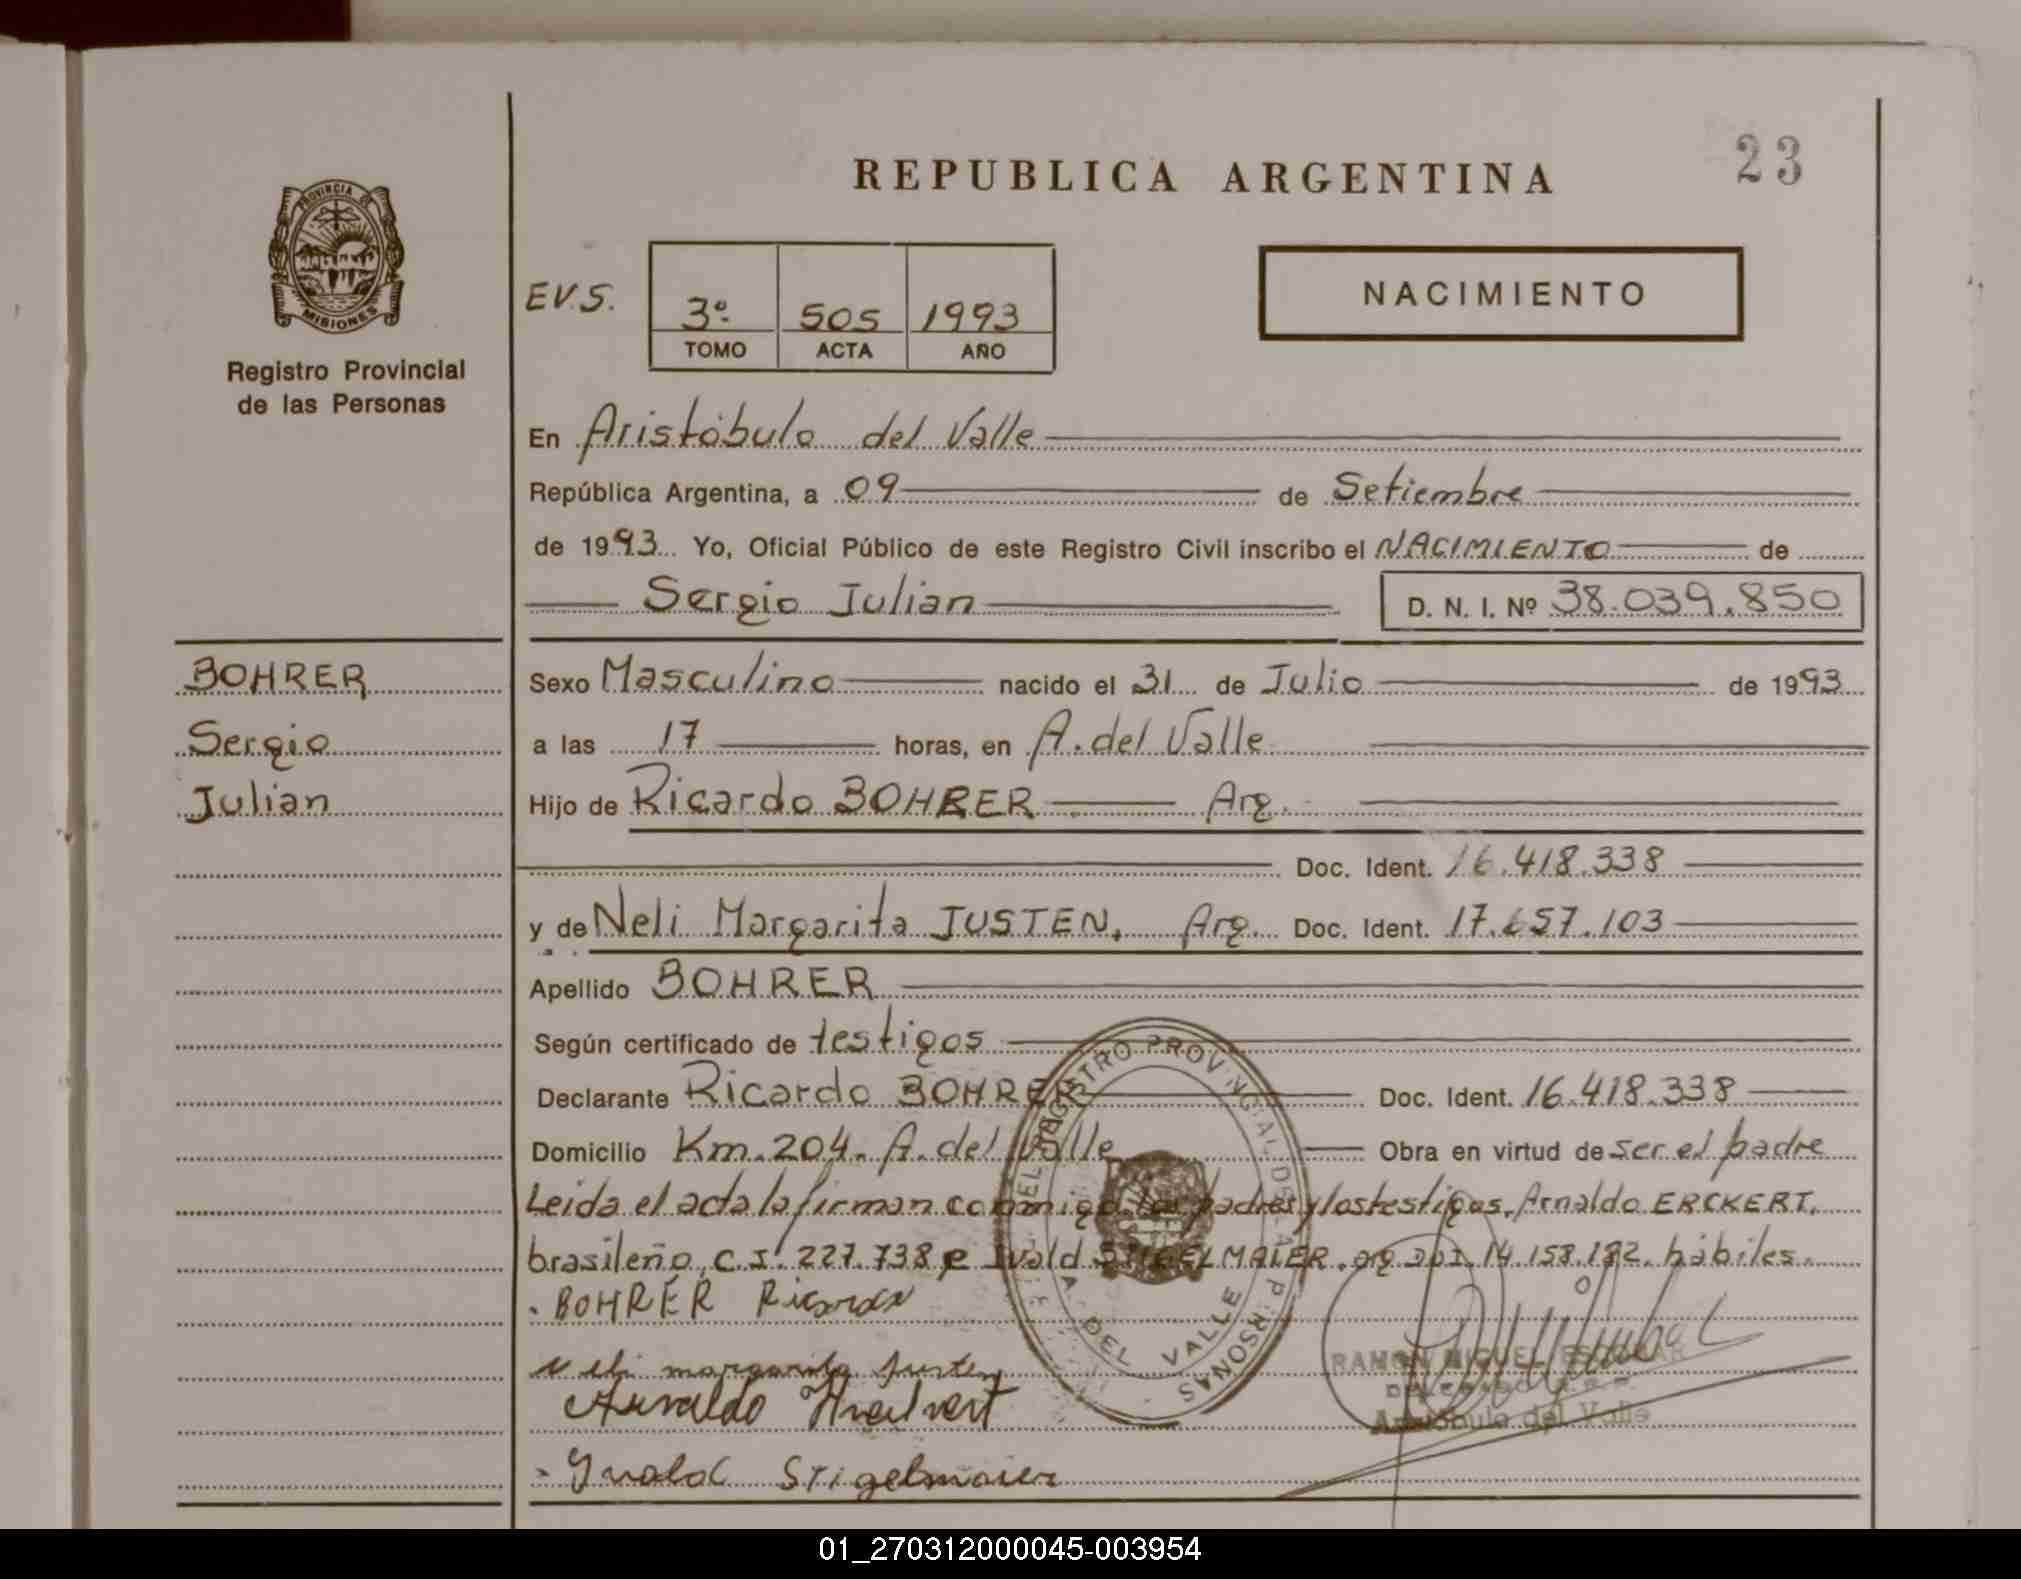 23
REPUBLICA ARGENTINA
PROVINCIA DE
MISIONES
Registro Provincial
de las Personas
EV.S.
3º 505 1993
TOMO ACTA AÑO
NACIMIENTO
En Aristóbulo del Valle
República Argentina, a 09 de Setiembre
de 1993 Yo, Oficial Público de este Registro Civil inscribo el NACIMIENTO de
Sergio Julian D. N. I. Nº 38.039.850
BOHRER
Sergio
Julian
Sexo Masculino nacido el 31 de Julio de 1993
a las 17 horas, en A. del Valle
Hijo de Ricardo BOHRER Arg.
Doc. Ident. 16.418.338
y de Neli Margarita JUSTEN, Arg. Doc. Ident. 17.657.103
Apellido BOHRER
Según certificado de testigos
Declarante Ricardo BOHRER Doc. Ident. 16.418.338
Domicilio Km. 204. A. del Valle Obra en virtud de ser el padre
Leida el acta la firman conmigo los padres y los testigos, Arnaldo ERCKERT,
brasileño, C.I. 227.738 e Ivald STIGELMAIER, arg. 14.158.182. hábiles.
BOHRER Ricardo
Neli margarita Justen
Arnaldo
Ivald Stigelmaier
REGISTRO PROVINCIAL DE LAS PERSONAS
A. DEL VALLE
RAMON MIGUEL ESCOBAR
Aristóbulo del Valle
01_270312000045-003954